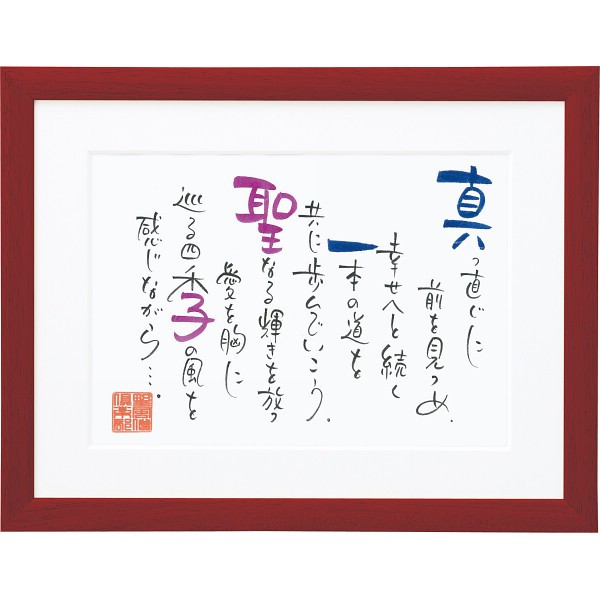 真っ直ぐに
前を見つめ、
幸せへと続く
一本の道を
共に歩んでいこう。
聖なる輝きを放つ
愛を胸に
巡る四季子の風を
感じながら…。